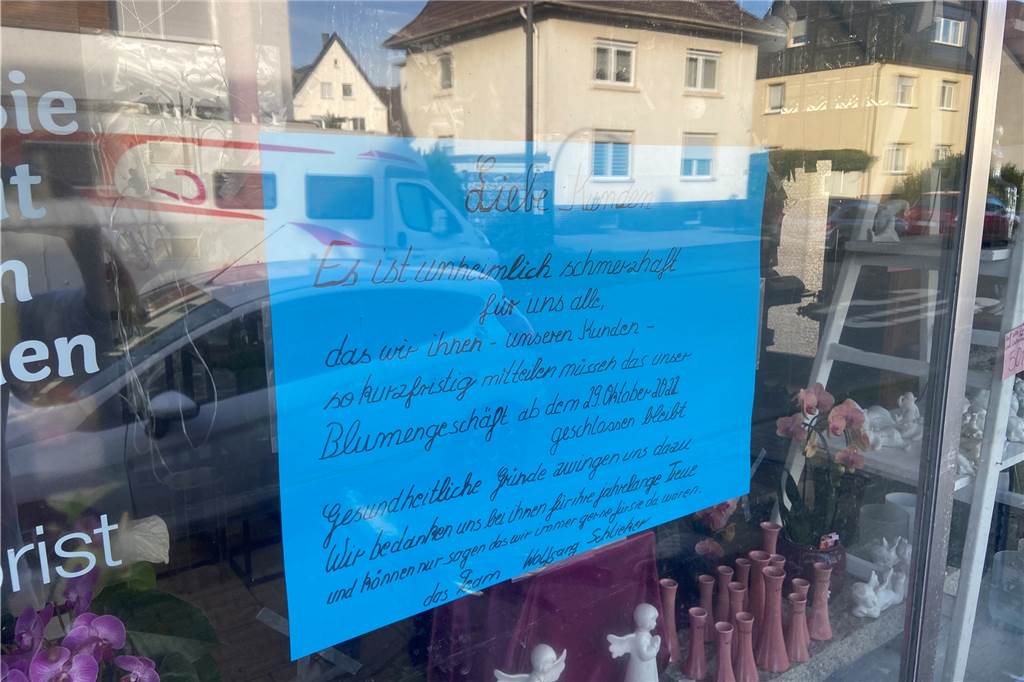 sie
nen
orist
Liebe Kunden
Es ist unheimlich schmerzhaft
für uns alle,
das wir ihnen - unseren Kunden -
so kurzfristig mitteilen müssen das unser
Blumengeschäft ab dem 29. Oktober 2022
geschlossen bleibt
Gesundheitliche Gründe zwingen uns dazu
Wir bedanken uns bei ihnen für ihre jahrelange Treue
und können nur sagen das wir immer gerne für sie da waren.
das Team Wolfgang Schlieker